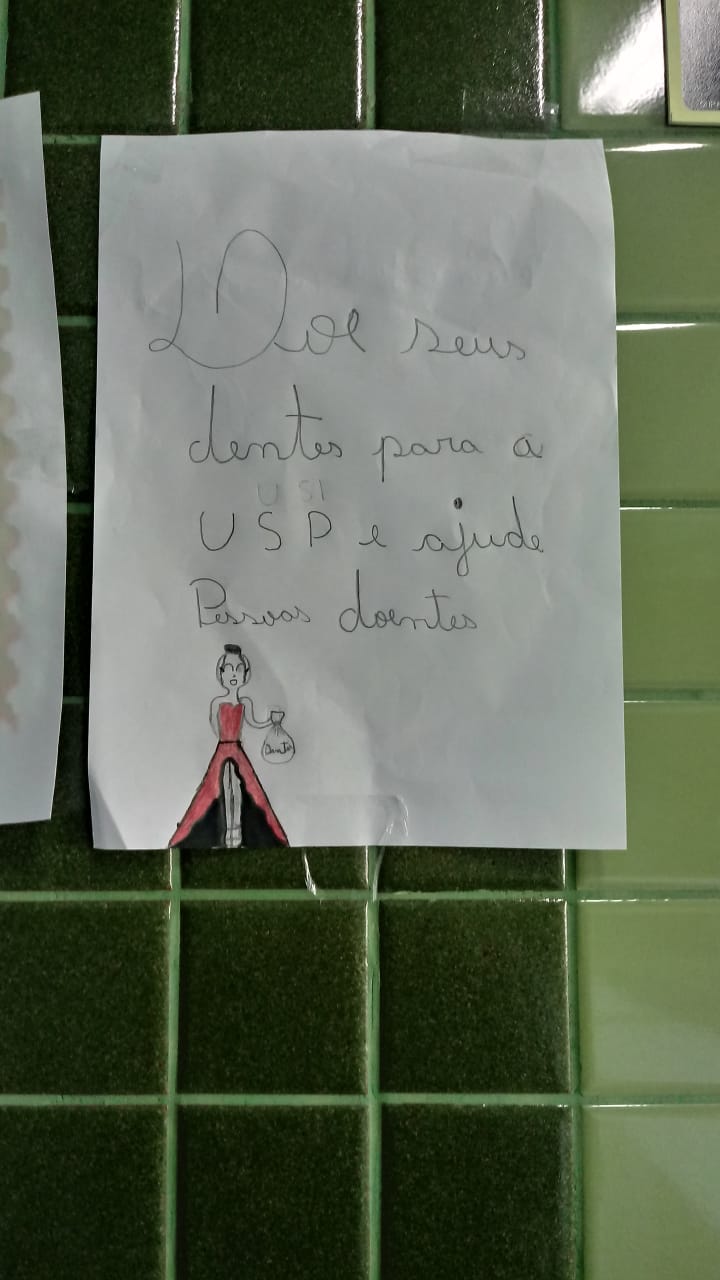 Doe seus
dentes para a
USP e ajude
Pessoas doentes